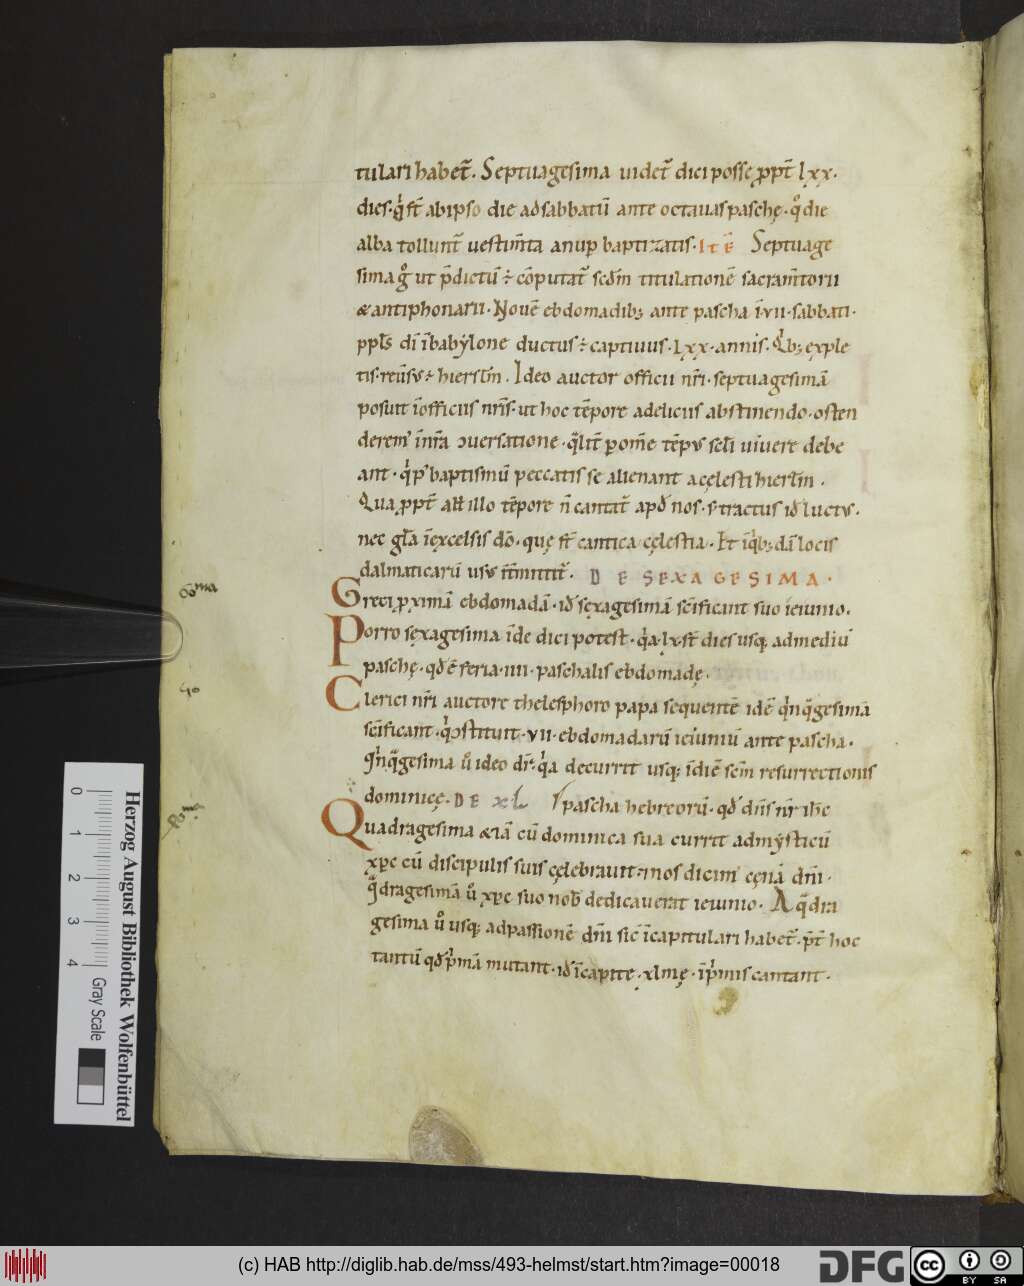 tulari habet̄. Septuagesima uidet̄ dici posse ꝓpt̄ lxx.
dies. qͥ st̄ ab ipso die ad sabbatū ante octauas paschę. qͦ die
alba tollunt̄ uestim̄ta a nuꝑ baptizatis. ITĒ Septuage
sima gͦ ut p̄dictū ÷ cōputat̄ scdm̄ titulationē sacram̄torii
& antiphonarii. Nouē ebdomadib; ante pascha ī vii. sabbati.
ppl̄s dī ī babẏlone ductus ÷ captiuus. lxx. annis. Qͥb; exple
tis. reūsꝰ ÷ hierl̄m. Ideo auctor officii nr̄i. septuagesimā
posuit ī officiis nr̄is. ut hoc tēpore a deliciis abstinendo. osten
deremꝰ ī nr̄a ↄuersatione. qͣlit̄ ꝑ om̄e tēpꝰ sc̄li uiuere debe
ant. qͥ p̄ baptismū peccatis se alienant a cęlesti hierl̄m.
Qua ꝓpt̄ all̄ illo tēpore n̄ cantat̄ apđ nos. s; tractus iđ luctꝰ.
nec gl̄a ī excelsis dō. quę st̄ cantica cęlestia. Et ī qͥb;dā locis
dalmaticarū usꝰ īt̄mittit̄. DE SEXAGESIMA.
Greci ꝓximā ebdomadā. iđ sexagesimā sc̄ificant suo ieiunio.
Porro sexagesima īde dici potest. qͥa. lx. st̄ dies usq; ad mediū
paschę. qđ ē feria. iiii. paschalis ebdomadę.
Clerici nr̄i auctore thelesphoro papa sequentē idē qͥnqͣgesimā
sc̄ificant. qͥ ↄstituit. vii. ebdomadarū ieiuniū ante pascha.
Qͥnqͣgesima u̅ ideo dr̄. qͥa decurrit usq; ī diē sc̄m resurrectionis
dominicę. DE XL pascha hebreorū. qđ dn̄s nr̄ ih̄c
Quadragesima & iā cū dominica sua currit ad mẏsticū
xp̄c cū discipulis suis cęlebrauit. & nos dicimꝰ cęnā dn̄i.
qͣdragesimā u̅ xp̄c suo nob̄ dedicauerat ieiunio. A qͣdra
gesima u̅ usq; ad passionē dn̄i sic̄ ī capitulari habet̄. p̄t̄ hoc
tantū qđ p̄mā mutant. iđ ī capite. xl.mę. ī p̄mis cantant.
Herzog August Bibliothek Wolfenbüttel
0 1 2 3 4 Gray Scale
(c) HAB http://diglib.hab.de/mss/493-helmst/start.htm?image=00018
DFG
cc BY SA